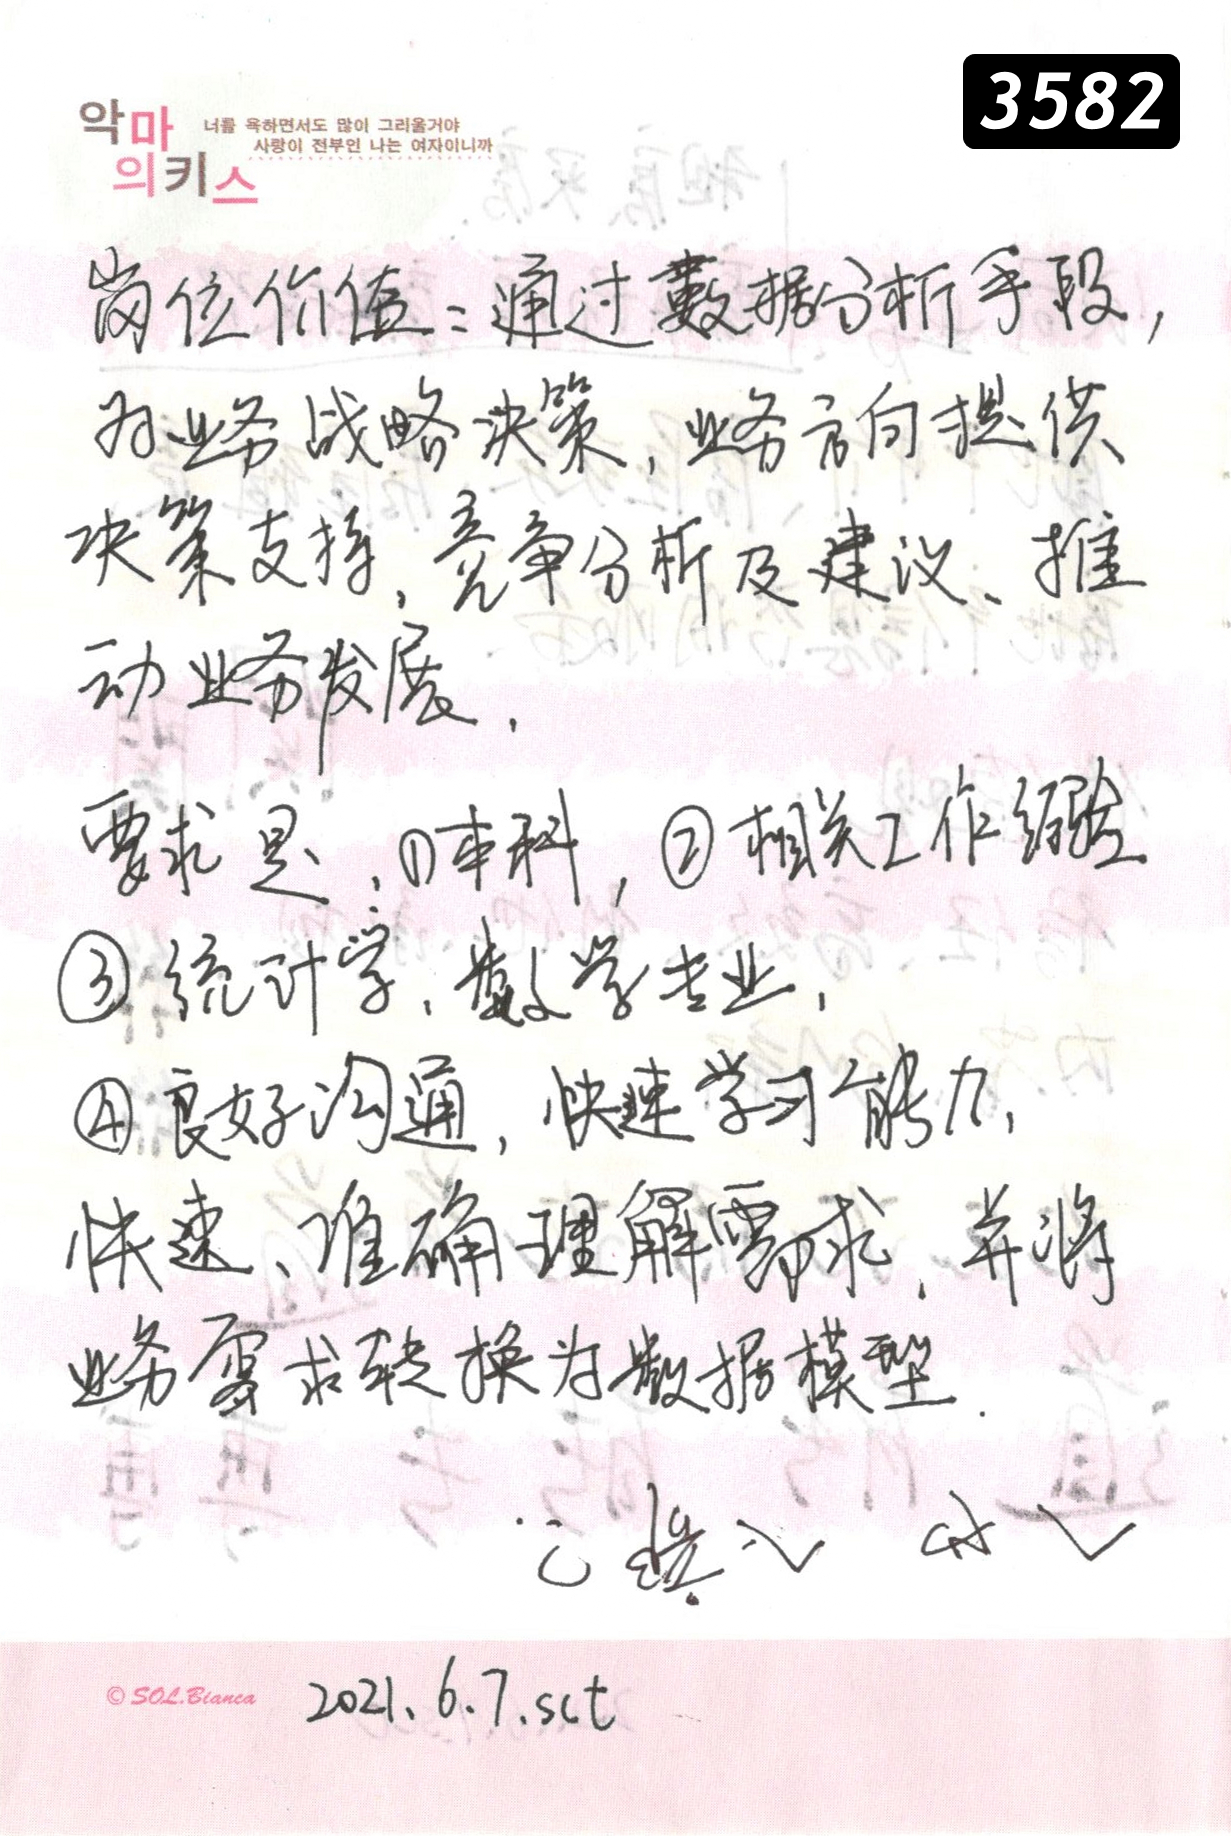 3582
악마
의키스
너를 욕하면서도 많이 그리울거야
사랑이 전부인 나는 여자이니까
岗位价值：通过数据分析手段，
为业务战略决策，业务方向提供
决策支持，竞争分析及建议、推
动业务发展.
要求是：①本科，②相关工作经验
③统计学、数学专业，
④良好沟通，快速学习能力，
快速、准确理解需求，并将
业务需求转换为数据模型.
© SOL.Bianca
2021.6.7.sct